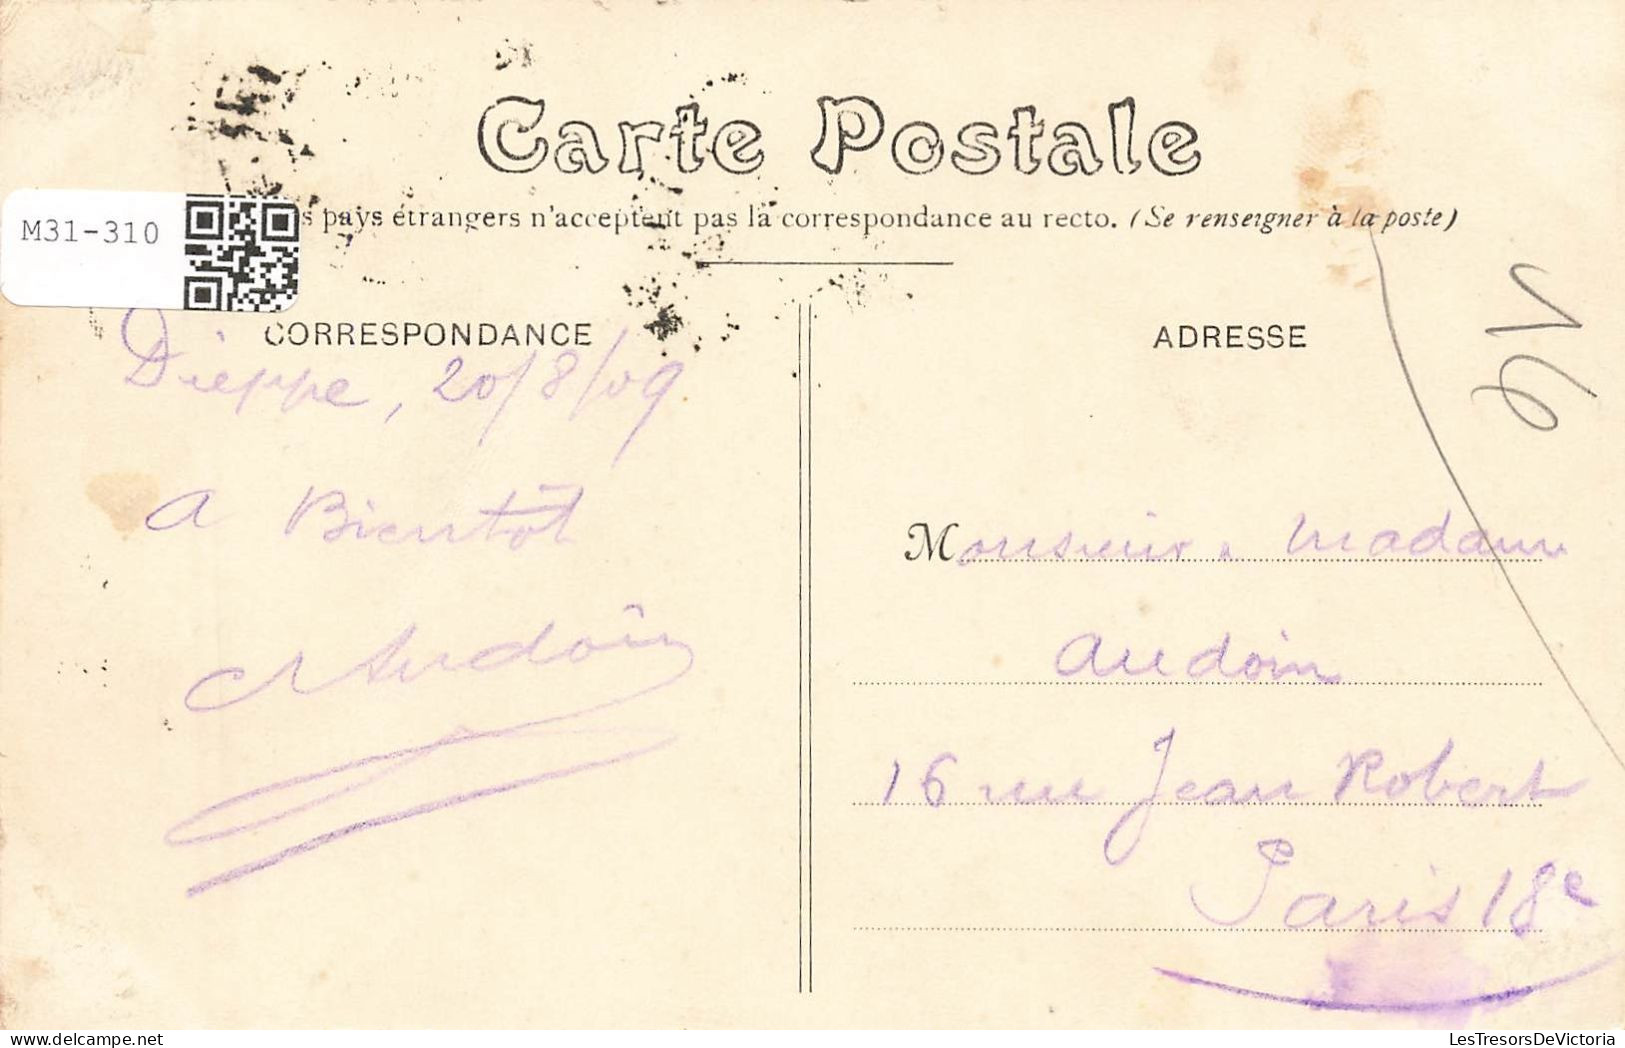 Carte Postale
M31-310
s pays étrangers n'acceptent pas la correspondance au recto. (Se renseigner à la poste)
CORRESPONDANCE
Dieppe, 20/8/09.
a Bientôt
Audoin
ADRESSE
16
Monsieur Madame
Audoin
16 rue Jean Robert
Paris 18e
LesTresorsDeVictoria